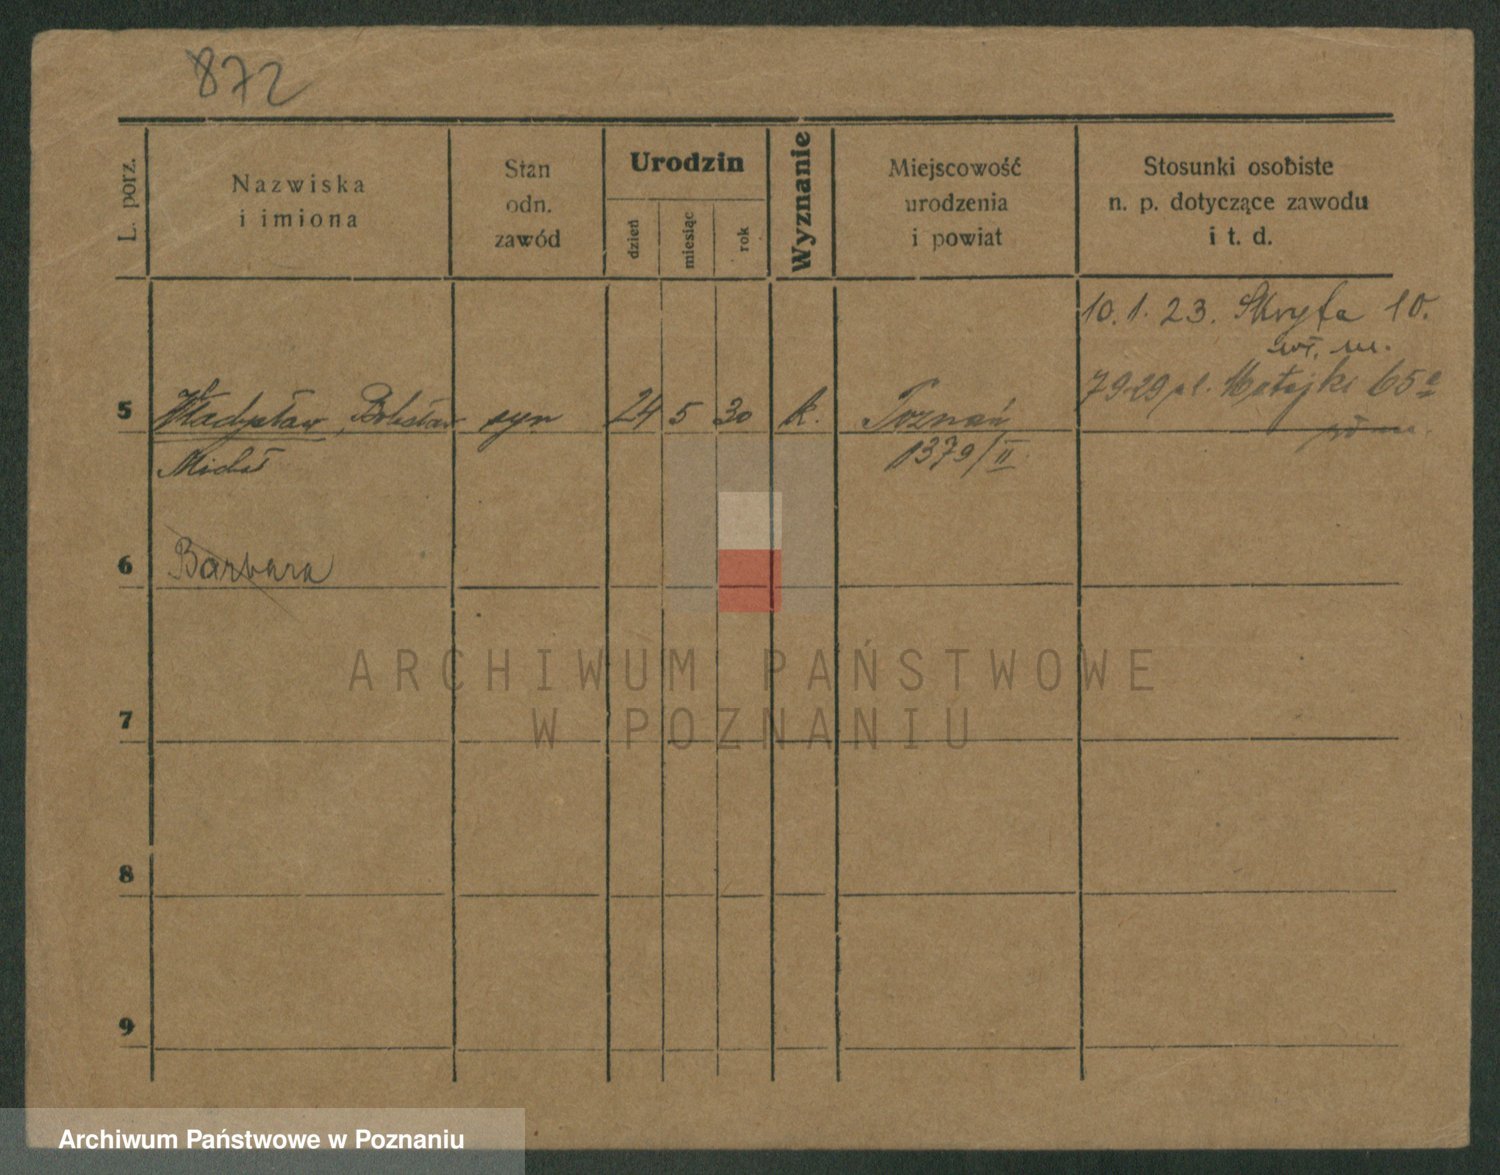 872
L. porz.
Nazwiska
i imiona
Stan
odn.
zawód
Urodzin
dzień
miesiąc
rok
Wyznanie
Miejscowość
urodzenia
i powiat
Stosunki osobiste
n. p. dotyczące zawodu
i t. d.
10. 1. 23. Skryta 10.
wł. m.
7929 pl. Matejki 65a
5 Władysław, Bolesław syn 24 5 30 k. Poznań
1379/II
6 Barbara
ARCHIWUM PAŃSTWOWE
W POZNANIU
7
8
9
Archiwum Państwowe w Poznaniu